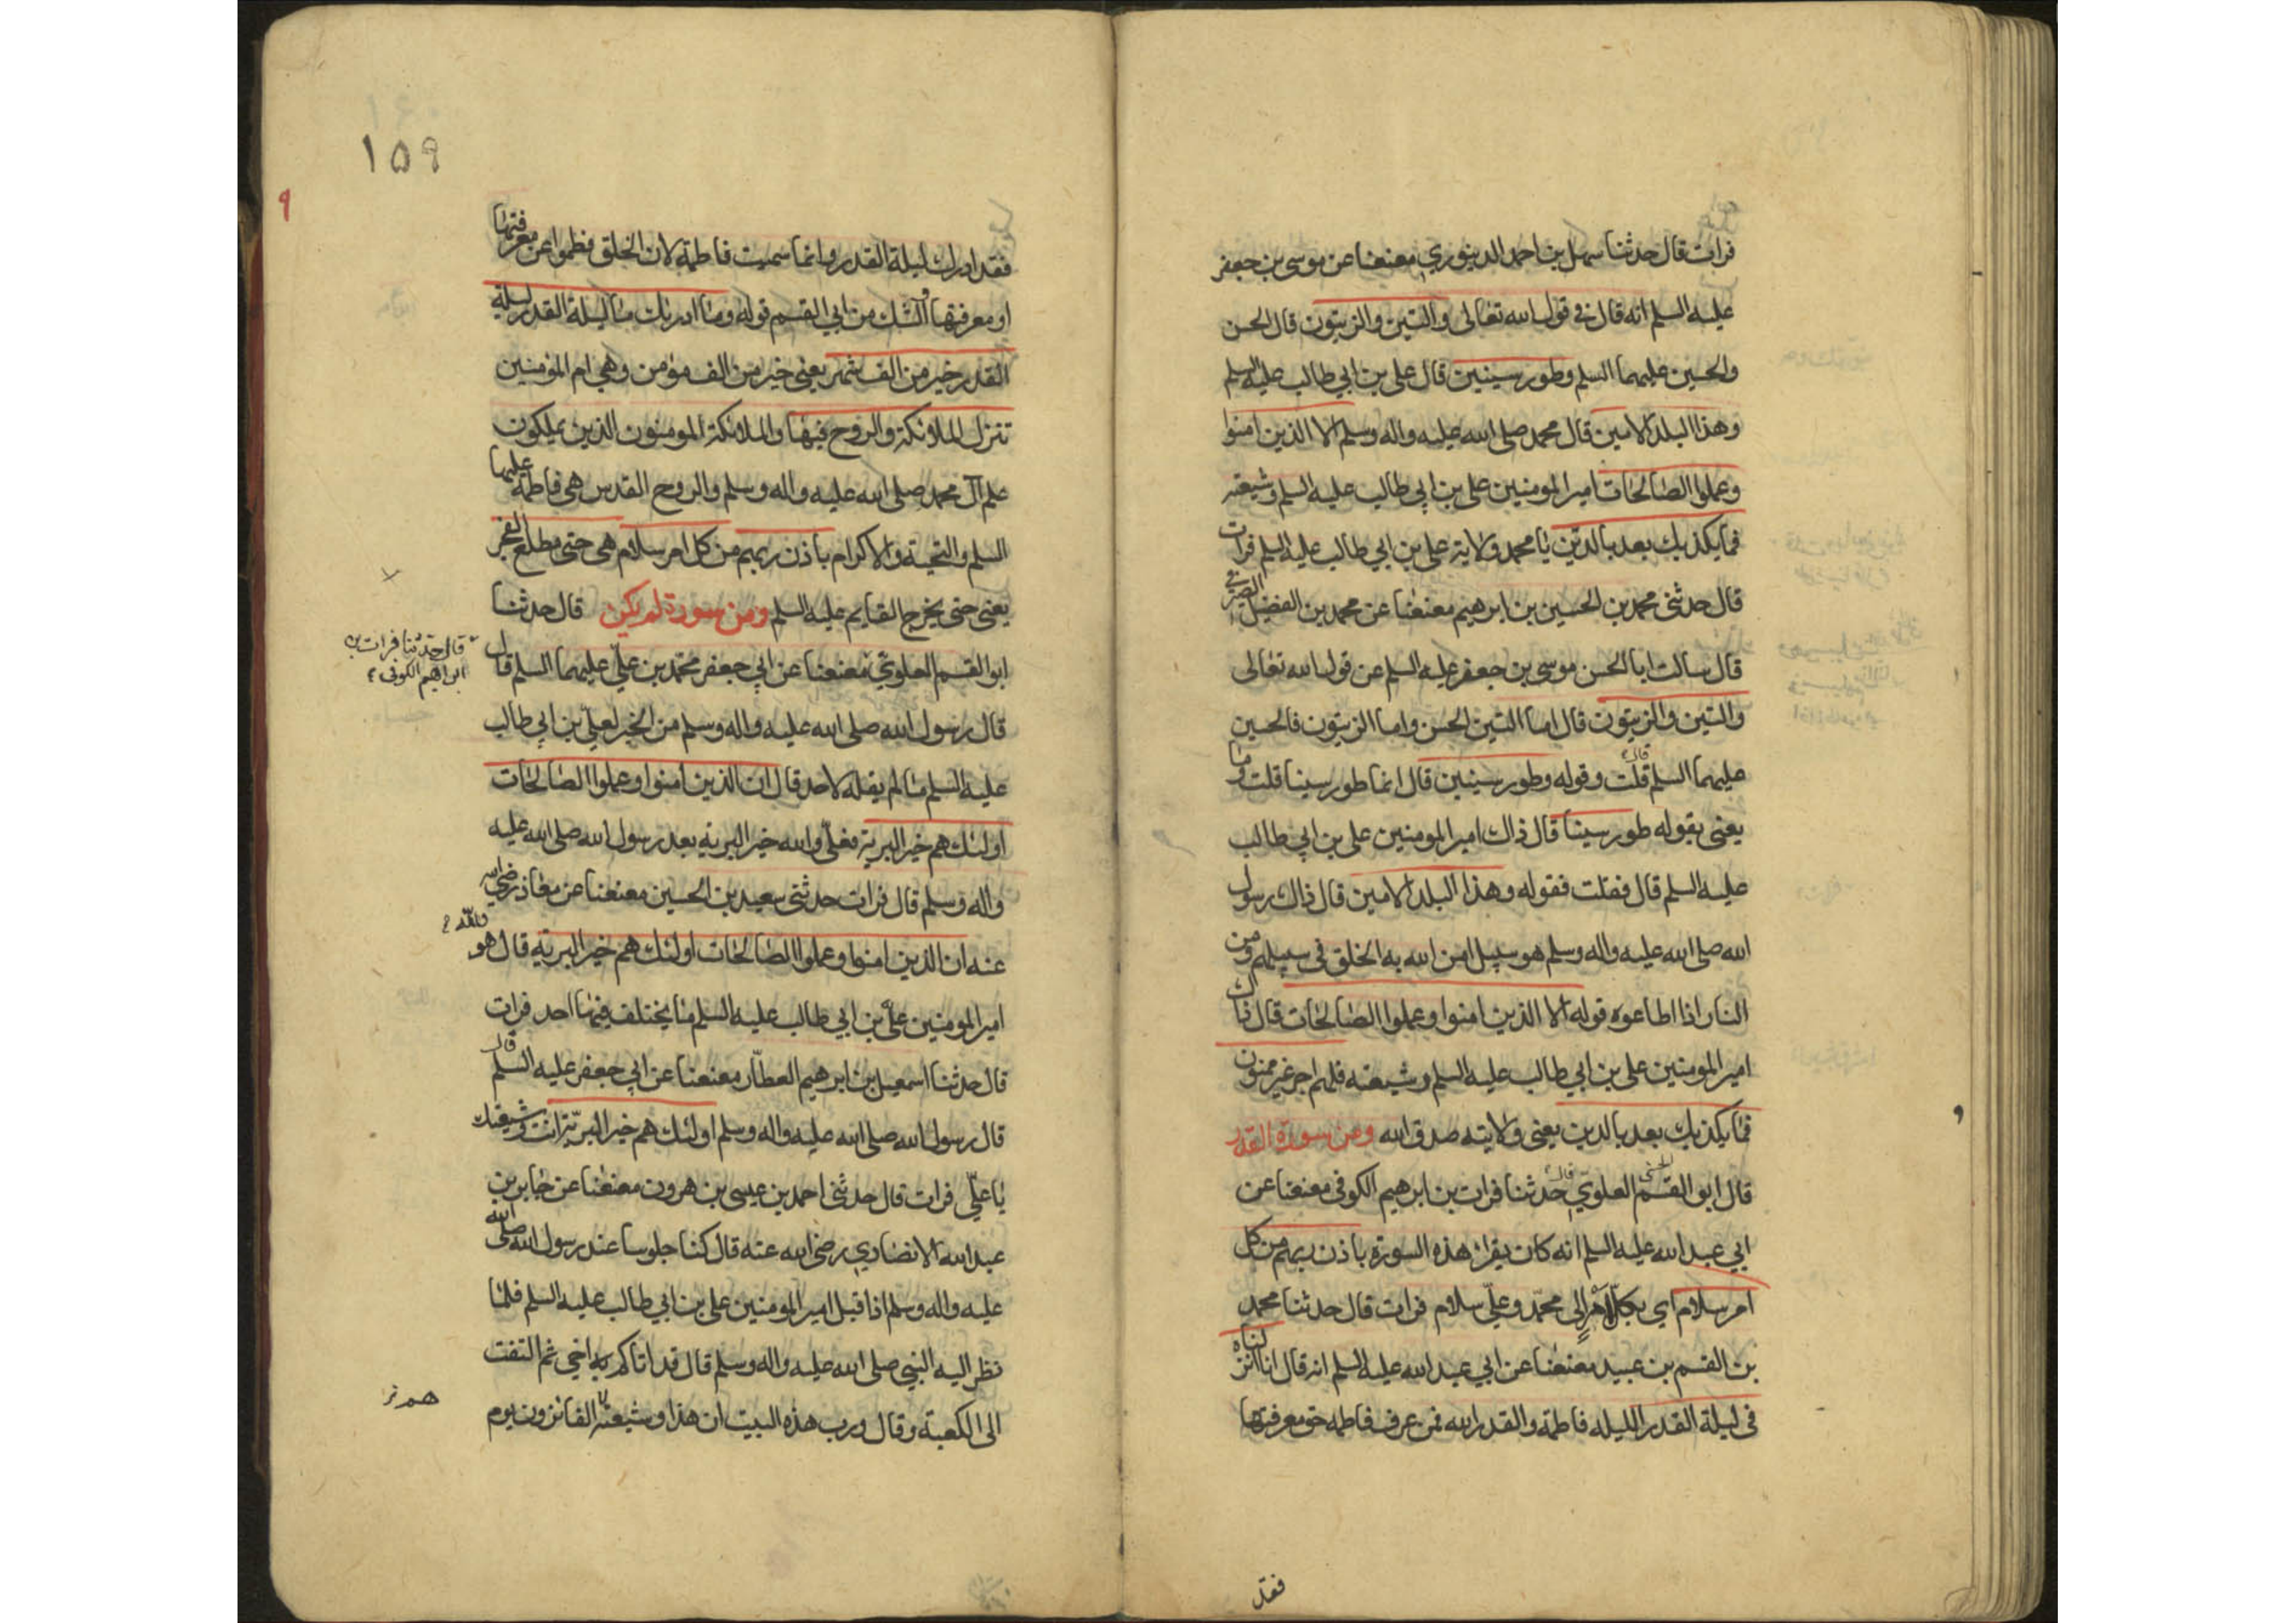 فرات قال حدثنا سهل بن احمد الدينوري معنعنا عن موسى بن جعفر
عليه السلم انه قال في قول الله تعالى والتين والزيتون قال الحسن
والحسين عليهما السلم وطور سينين قال علي بن ابي طالب عليه السلم
وهذا البلد الامين قال محمد صلى الله عليه واله وسلم الا الذين امنوا
وعملوا الصالحات امير المومنين علي بن ابي طالب عليه السلم وشيعته
فما يكذبك بعد بالدين يا محمد ولاية علي بن ابي طالب عليه السلم فرات
قال حدثني محمد بن الحسين بن ابرهيم معنعنا عن محمد بن الفضيل الصيرفي
قال سالت ابا الحسن موسى بن جعفر عليه السلم عن قول الله تعالى
والتين والزيتون قال اما التين الحسن واما الزيتون فالحسين
عليهما السلم قال قلت وقوله وطور سينين قال انما طور سينا قلت وما
يعني بقوله طور سينا قال ذاك امير المومنين علي بن ابي طالب
عليه السلم قال فقلت فقوله وهذا البلد الامين قال ذاك رسول
الله صلى الله عليه واله وسلم هو سبيل امن الله به الخلق في سبيلهم ومن
النار اذا اطاعوه قوله الا الذين امنوا وعملوا الصالحات قال ذاك
امير المومنين علي بن ابي طالب عليه السلم وشيعته فلهم اجر غير ممنون
فما يكذبك بعد بالدين يعني ولايته صدق الله ومن سورة القدر
قال ابو القسم الحسني العلوي قال حدثنا فرات بن ابرهيم الكوفي معنعنا عن
ابي عبد الله عليه السلم انه كان يقرا هذه السورة باذن ربهم من كل
امر سلام اي بكل امر الى محمد وعلي سلام فرات قال حدثنا محمد
بن القسم بن عبيد معنعنا عن ابي عبد الله عليه السلم انه قال انا انزلناه
في ليلة القدر الليله فاطمة والقدر الله فمن عرف فاطمه حق معرفتها
فقد
١٥٩
٩
فقد ادرك ليلة القدر وانما سميت فاطمة لان الخلق فطموا عن معرفتها
او معرفتها الشك من ابي القسم قوله وما ادريك ما ليلة القدر ليلة
القدر خير من الف شهر يعني خير من الف مومن وهي ام المومنين
تنزل الملائكة والروح فيها والملائكة المومنون الذين يملكون
علم آل محمد صلى الله عليه واله وسلم والروح القدس هي فاطمة عليها
السلم والتحية والاكرام باذن ربهم من كل امر سلام هي حتى مطلع الفجر
يعني حتى يخرج القايم عليه السلم ومن سورة لم يكن قال حدثنا
ابو القسم العلوي معنعنا عن ابي جعفر محمد بن علي عليهما السلم قال
قال حدثنا فرات بن
ابراهيم الكوفي
قال رسول الله صلى الله عليه واله وسلم من الخير لعلي بن ابي طالب
عليه السلم ما لم يقله لاحد قال ان الذين امنوا وعملوا الصالحات
اولئك هم خير البرية فعلي والله خير البرية بعد رسول الله صلى الله عليه
واله وسلم قال فرات حدثني سعيد بن الحسين معنعنا عن معاذ رضي الله
عنه ان الذين امنوا وعملوا الصالحات اولئك هم خير البرية قال هو والله
امير المومنين علي بن ابي طالب عليه السلم ما يختلف فيها احد فرات
قال حدثنا اسمعيل بن ابرهيم العطار معنعنا عن ابي جعفر عليه السلم قال
قال رسول الله صلى الله عليه واله وسلم اولئك هم خير البرية انت وشيعتك
يا علي فرات قال حدثني احمد بن عيسى بن هرون معنعنا عن جابر بن
عبد الله الانصاري رضي الله عنه قال كنا جلوسا عند رسول الله صلى الله
عليه واله وسلم اذا قبل امير المومنين علي بن ابي طالب عليه السلم فلما
نظر اليه النبي صلى الله عليه واله وسلم قال قد اتاكم اخي ثم التفت
الى الكعبة وقال ورب هذه البيت ان هذا وشيعته الفائزون يوم
هم